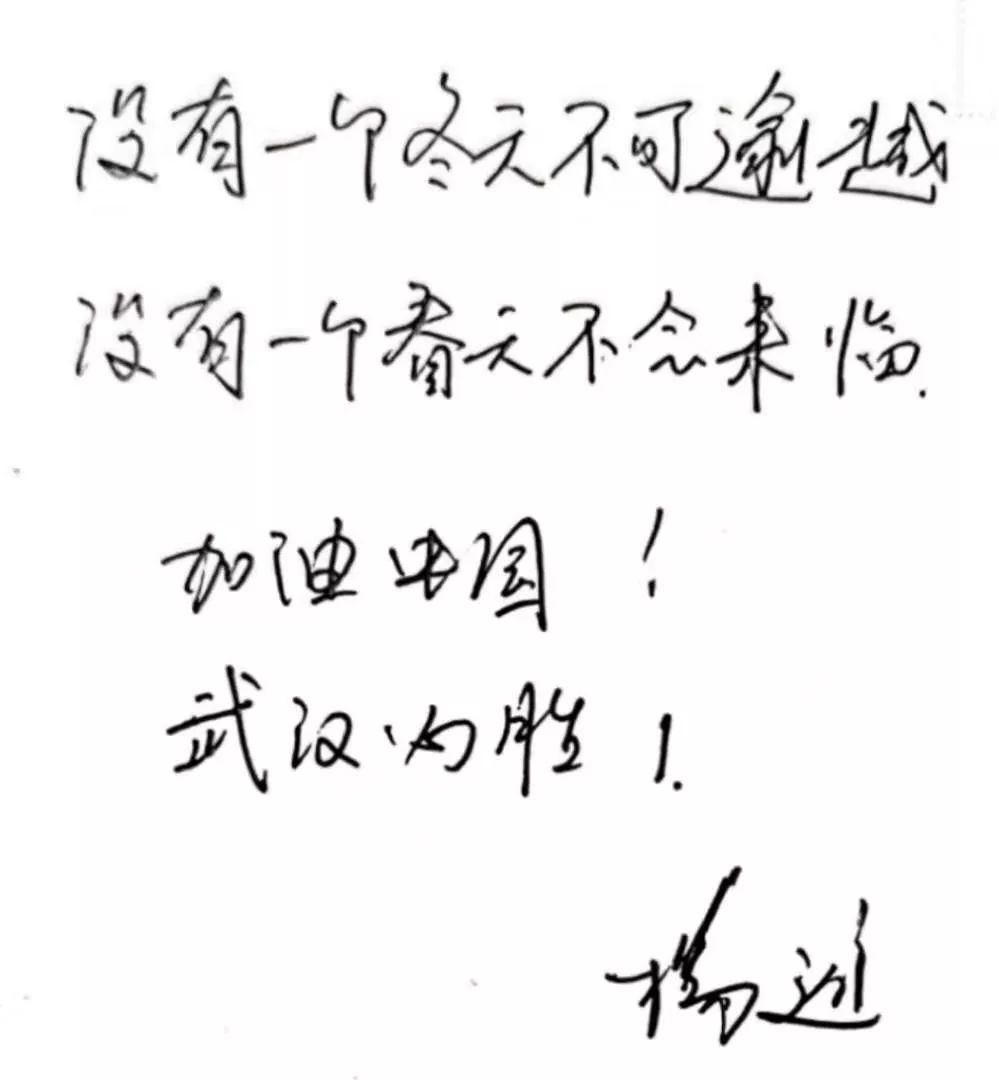 没有一个冬天不可逾越
没有一个春天不会来临.
加油中国!
武汉必胜!
杨进